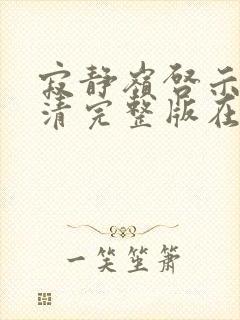 寂静岭启示
清完整版在
一笑坐萧